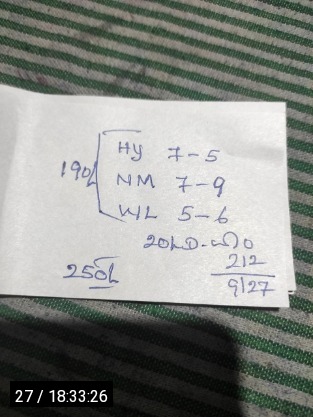 HY 7-5
190L NM 7-9
WL 5-6
20LD-
212
250L 9127
27 / 18:33:26